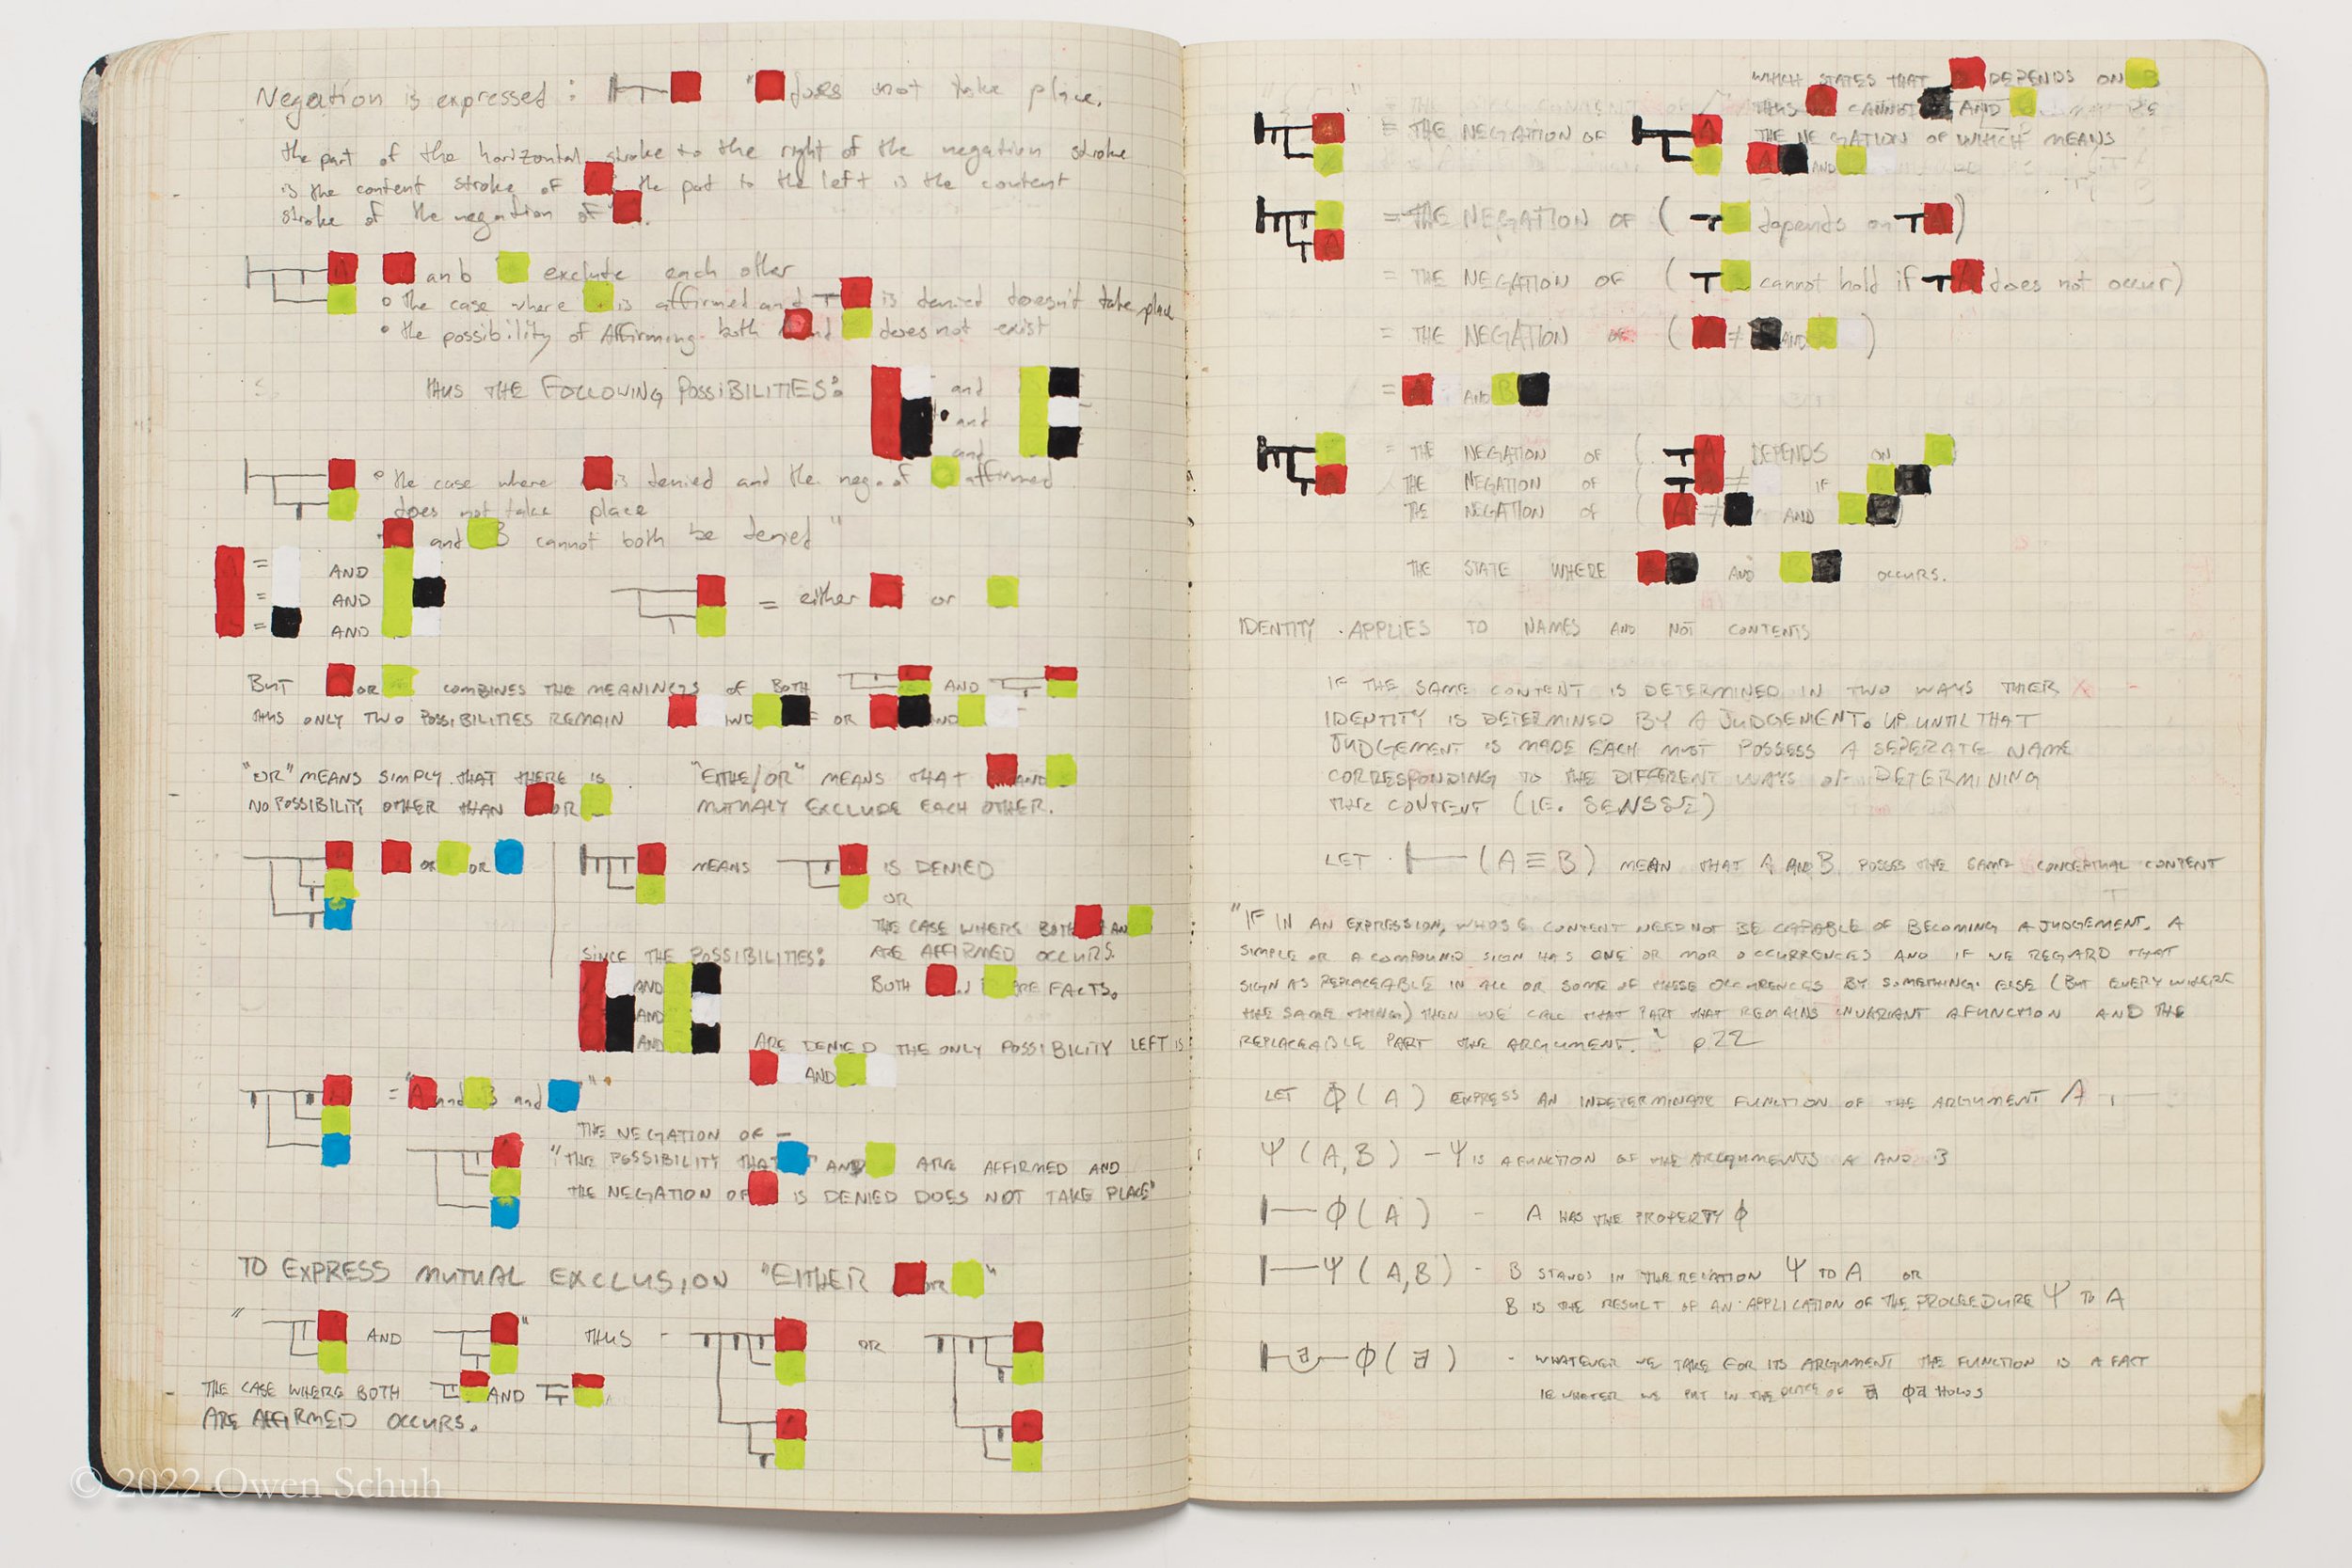 Negation is expressed : " does not take place.
the part of the horizontal stroke to the right of the negation stroke
is the content stroke of the part to the left is the content
stroke of the negation of .
A and exclude each other
o the case where is affirmed and is denied doesn't take place
• the possibility of Affirming both and does not exist
THUS THE FOLLOWING POSSIBILITIES: and
and
and
o the case where is denied and the neg. of affirmed
does not take place
and B cannot both be denied"
= AND
= AND
= AND
= either or
BUT OR COMBINES THE MEANINGS OF BOTH AND
THUS ONLY TWO POSSIBILITIES REMAIN AND OR AND
"OR" MEANS SIMPLY THAT THERE IS
NO POSSIBILITY OTHER THAN OR
"EITHE/OR" MEANS THAT AND
MUTUALY EXCLUDE EACH OTHER.
OR OR
MEANS IS DENIED
OR
THE CASE WHERE BOTH AND
ARE AFFIRMED OCCURS.
SINCE THE POSSIBILITIES:
AND
AND
AND
BOTH ARE FACTS.
ARE DENIED THE ONLY POSSIBILITY LEFT IS
AND
= "A and B and "
THE NEGATION OF –
"THE POSSIBILITY THAT AND ARE AFFIRMED AND
THE NEGATION OF IS DENIED DOES NOT TAKE PLACE"
TO EXPRESS MUTUAL EXCLUSION "EITHER OR "
" AND " THUS - OR
THE CASE WHERE BOTH AND
ARE AFFIRMED OCCURS.
© 2022 Owen Schuh
WHICH STATES THAT DEPENDS ON B
THUS CANNOT AND BE
≡ THE NEGATION OF A THE NEGATION OF WHICH MEANS
AND
= THE NEGATION OF ( depends on A )
= THE NEGATION OF ( cannot hold if A does not occur)
= THE NEGATION OF ( ≠ AND )
= A AND B
= THE NEGATION OF ( A DEPENDS ON )
THE NEGATION OF ( ≠ IF
THE NEGATION OF ( A ≠ AND )
THE STATE WHERE A AND OCCURS.
IDENTITY . APPLIES TO NAMES AND NOT CONTENTS
IF THE SAME CONTENT IS DETERMINED IN TWO WAYS THIER
IDENTITY IS DETERMINED BY A JUDGEMENT. UP UNTIL THAT
JUDGEMENT IS MADE EACH MUST POSSESS A SEPERATE NAME
CORRESPONDING TO THE DIFFERENT WAYS OF DETERMINING
CONTENT (IE. SENSSE)
LET ⊢ (A ≡ B) MEAN THAT A AND B POSSES THE SAME CONCEPTUAL CONTENT
"IF IN AN EXPRESSION, WHOSE CONTENT NEED NOT BE CAPABLE OF BECOMING A JUDGEMENT. A
SIMPLE OR A COMPOUND SIGN HAS ONE OR MOR OCCURRENCES AND IF WE REGARD THAT
SIGN AS REPLACEABLE IN ALL OR SOME OF THESE OCCURENCES BY SOMETHING ELSE (BUT EVERYWHERE
THE SAME THING) THEN WE CALL THAT PART THAT REMAINS INVARIANT A FUNCTION AND THE
REPLACEABLE PART THE ARGUMENT." p22
LET Φ(A) EXPRESS AN INDETERMINATE FUNCTION OF THE ARGUMENT A
Ψ(A,B) – Ψ IS A FUNCTION OF THE ARGUMENTS A AND B
⊢ Φ(A) - A HAS THE PROPERTY Φ
⊢ Ψ(A,B) - B STANDS IN THE RELATION Ψ TO A OR
B IS THE RESULT OF AN APPLICATION OF THE PROCEEDURE Ψ TO A
Φ(a) - WHATEVER WE TAKE FOR ITS ARGUMENT THE FUNCTION IS A FACT
IE WHATER WE PUT IN THE PLACE OF a Φa HOLDS